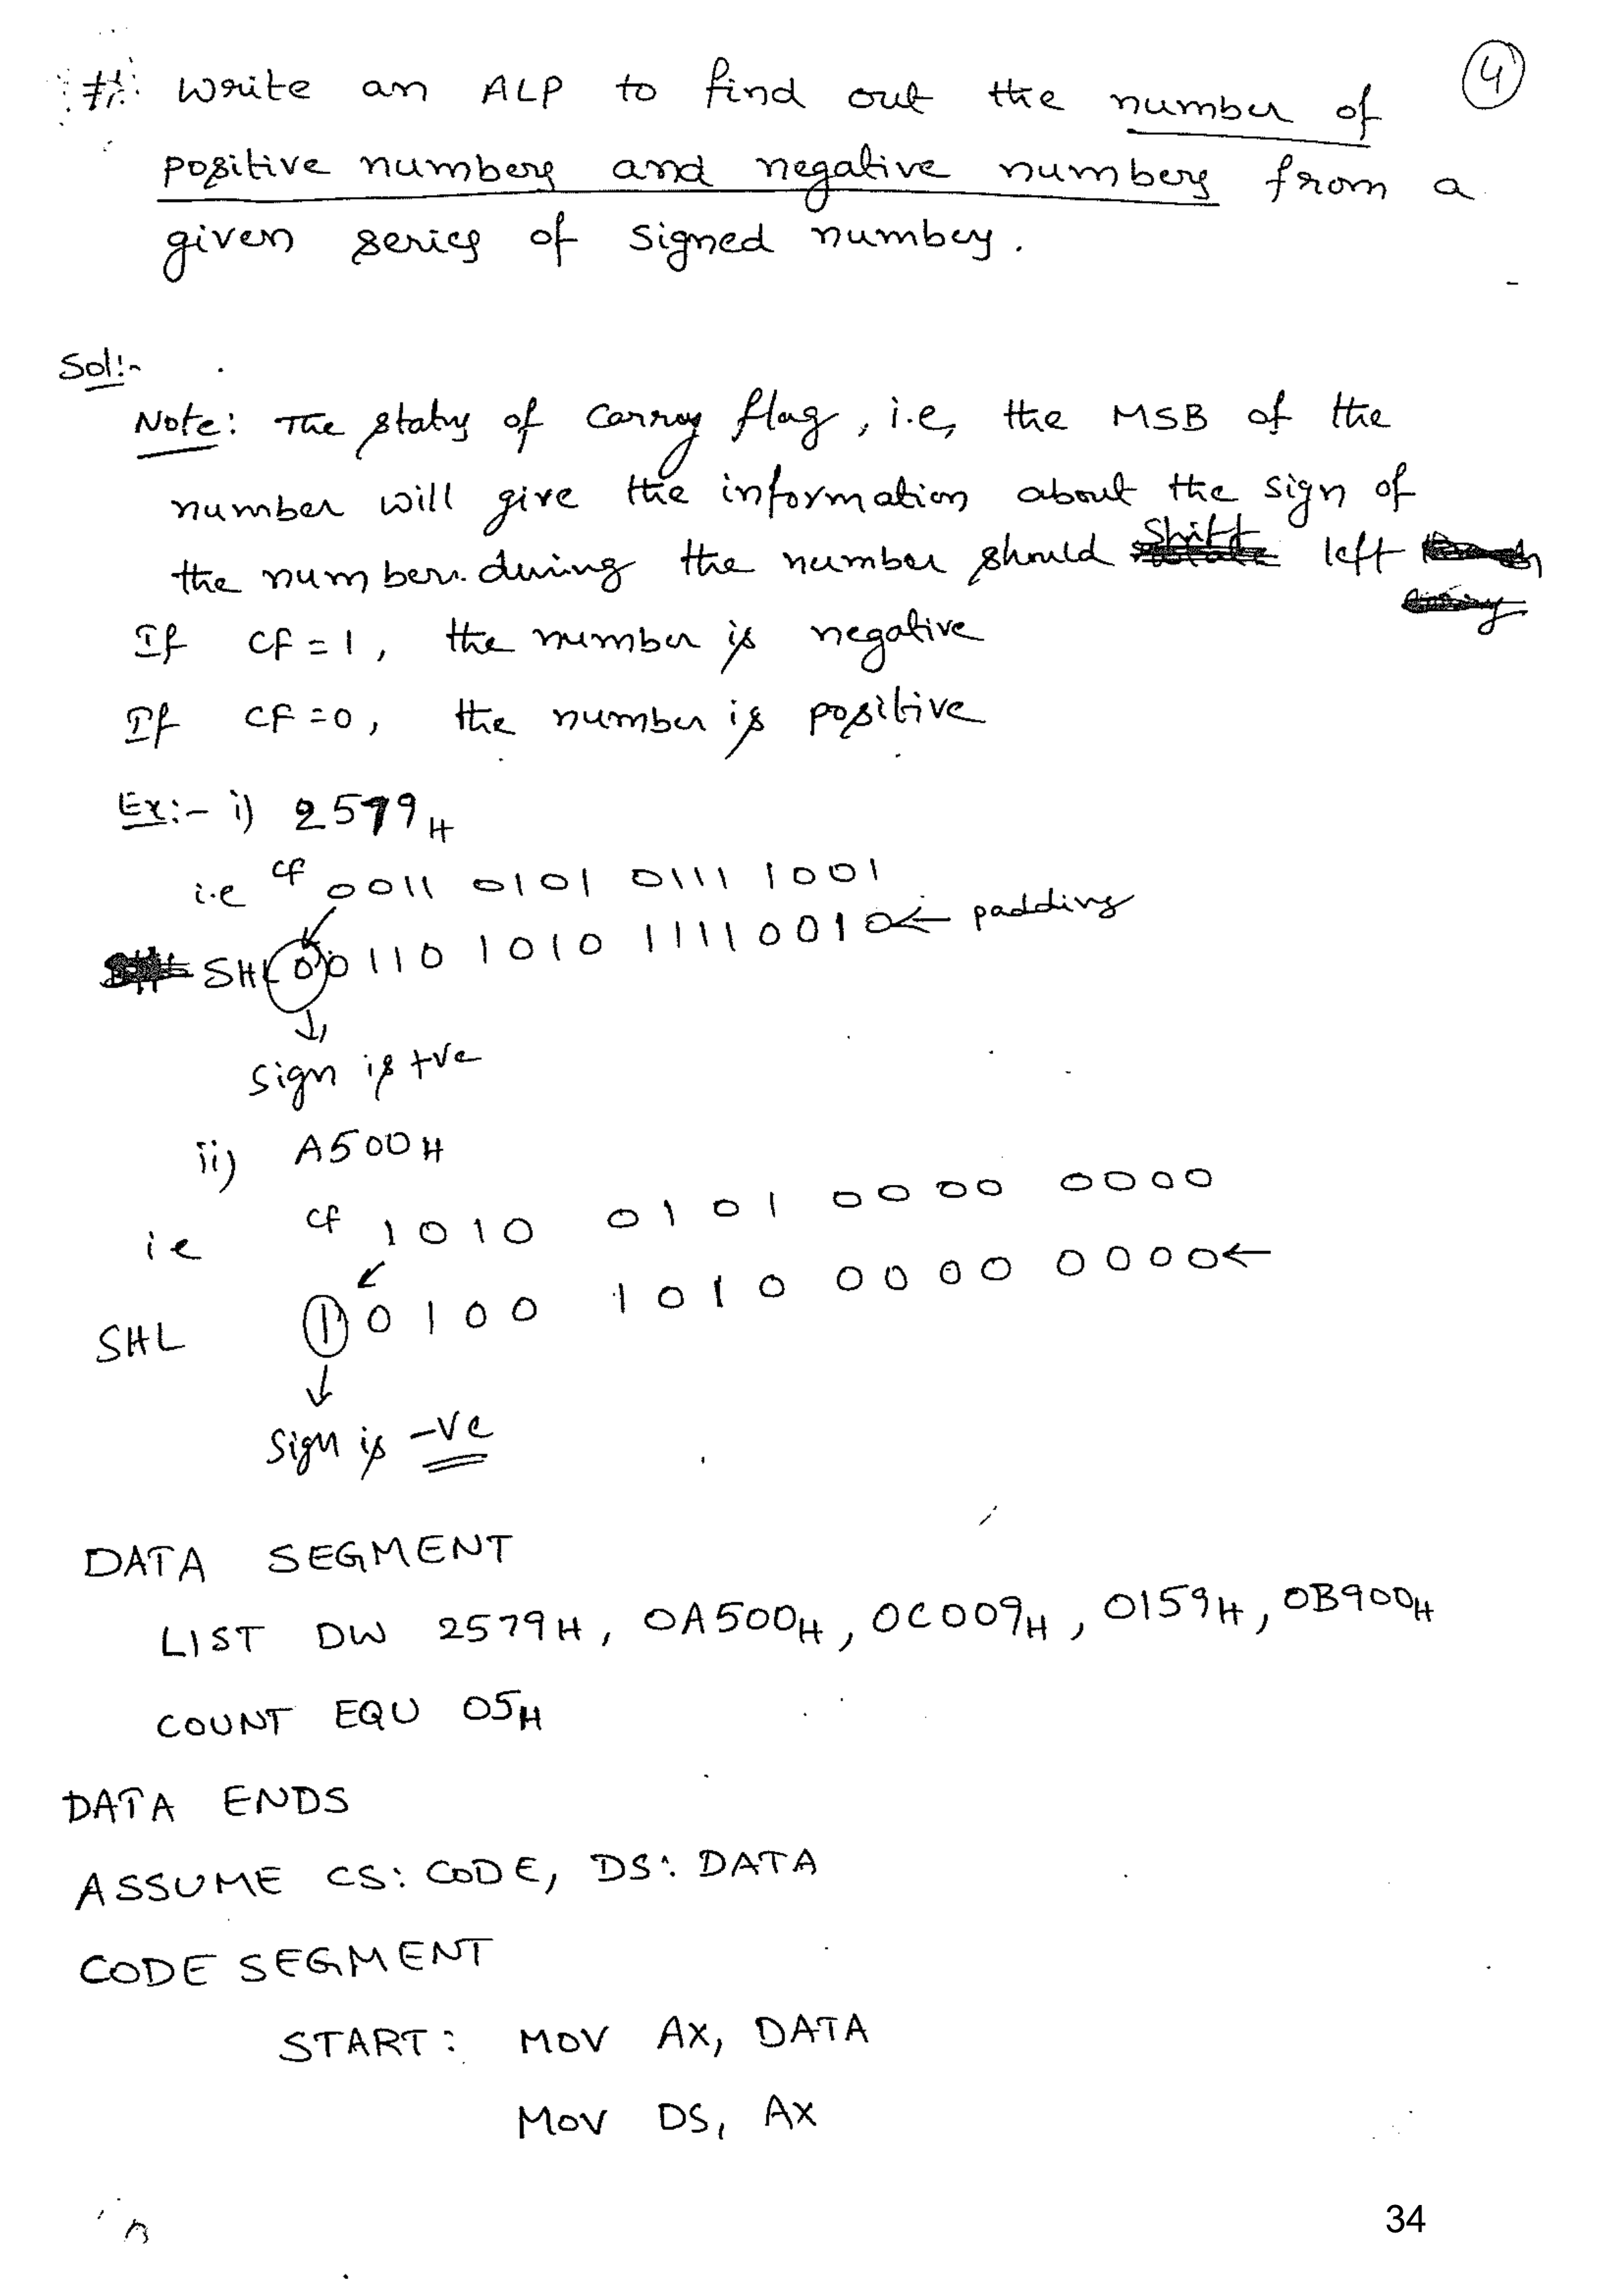 4
# Write an ALP to find out the number of
positive numbers and negative numbers from a
given series of signed numbers.
Sol:-
Note: The status of carry flag, i.e, the MSB of the
number will give the information about the sign of
the number. during the number should shift left
If CF = 1, the number is negative
If CF = 0, the number is positive
Ex:- i) 2579H
i.e CF 0011 0101 0111 1001
SHL 0 0110 1010 1111 0010 ← padding
↓
Sign is +ve
ii) A500H
ie CF 1010 0101 0000 0000
SHL 1 0100 1010 0000 0000 ←
↓
Sign is -ve
DATA SEGMENT
LIST DW 2579H, 0A500H, 0C009H, 0159H, 0B900H
COUNT EQU 05H
DATA ENDS
ASSUME CS: CODE, DS: DATA
CODE SEGMENT
START: MOV AX, DATA
MOV DS, AX
34